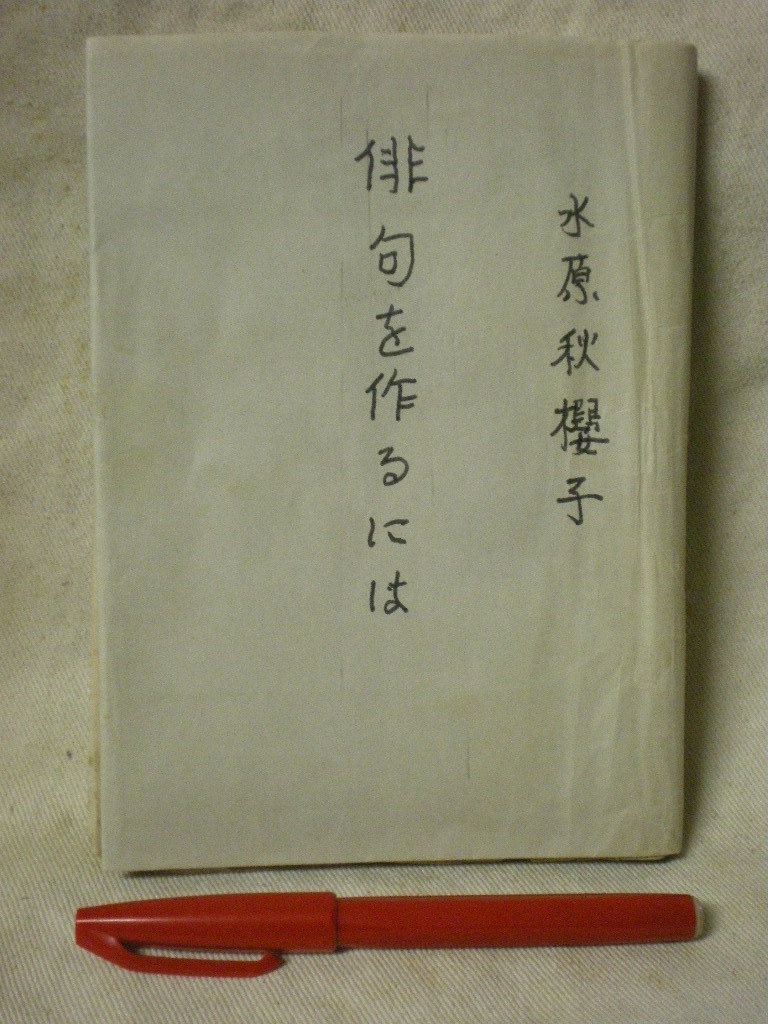 水原秋櫻子
俳句を作るには